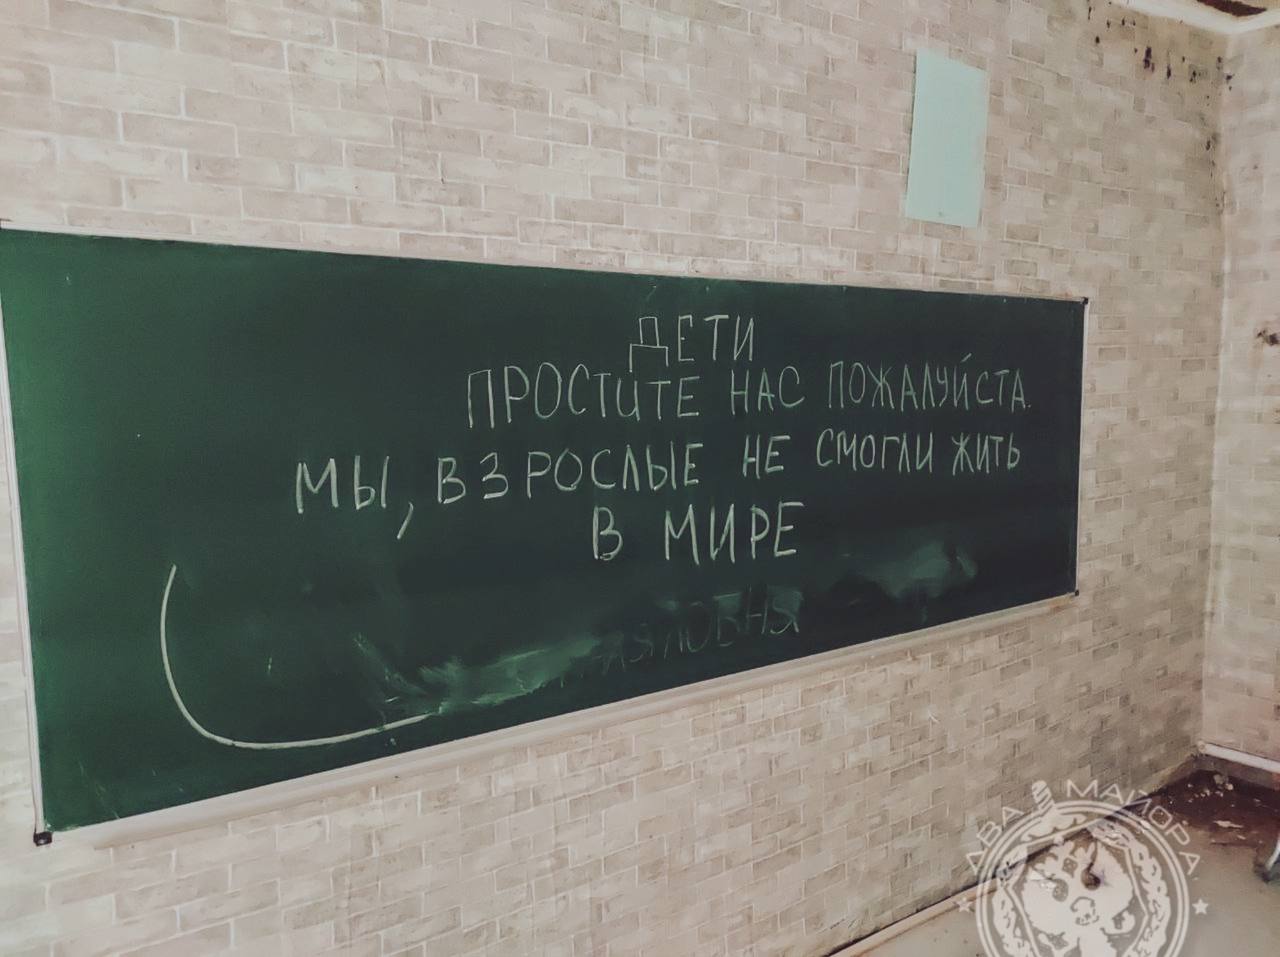 ДЕТИ
ПРОСТИТЕ НАС ПОЖАЛУЙСТА.
МЫ, ВЗРОСЛЫЕ НЕ СМОГЛИ ЖИТЬ
В МИРЕ
ДВА МАЙОРА